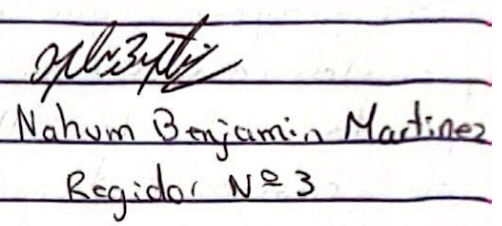 Nahum Benjamin Martinez
Regidor Nº 3